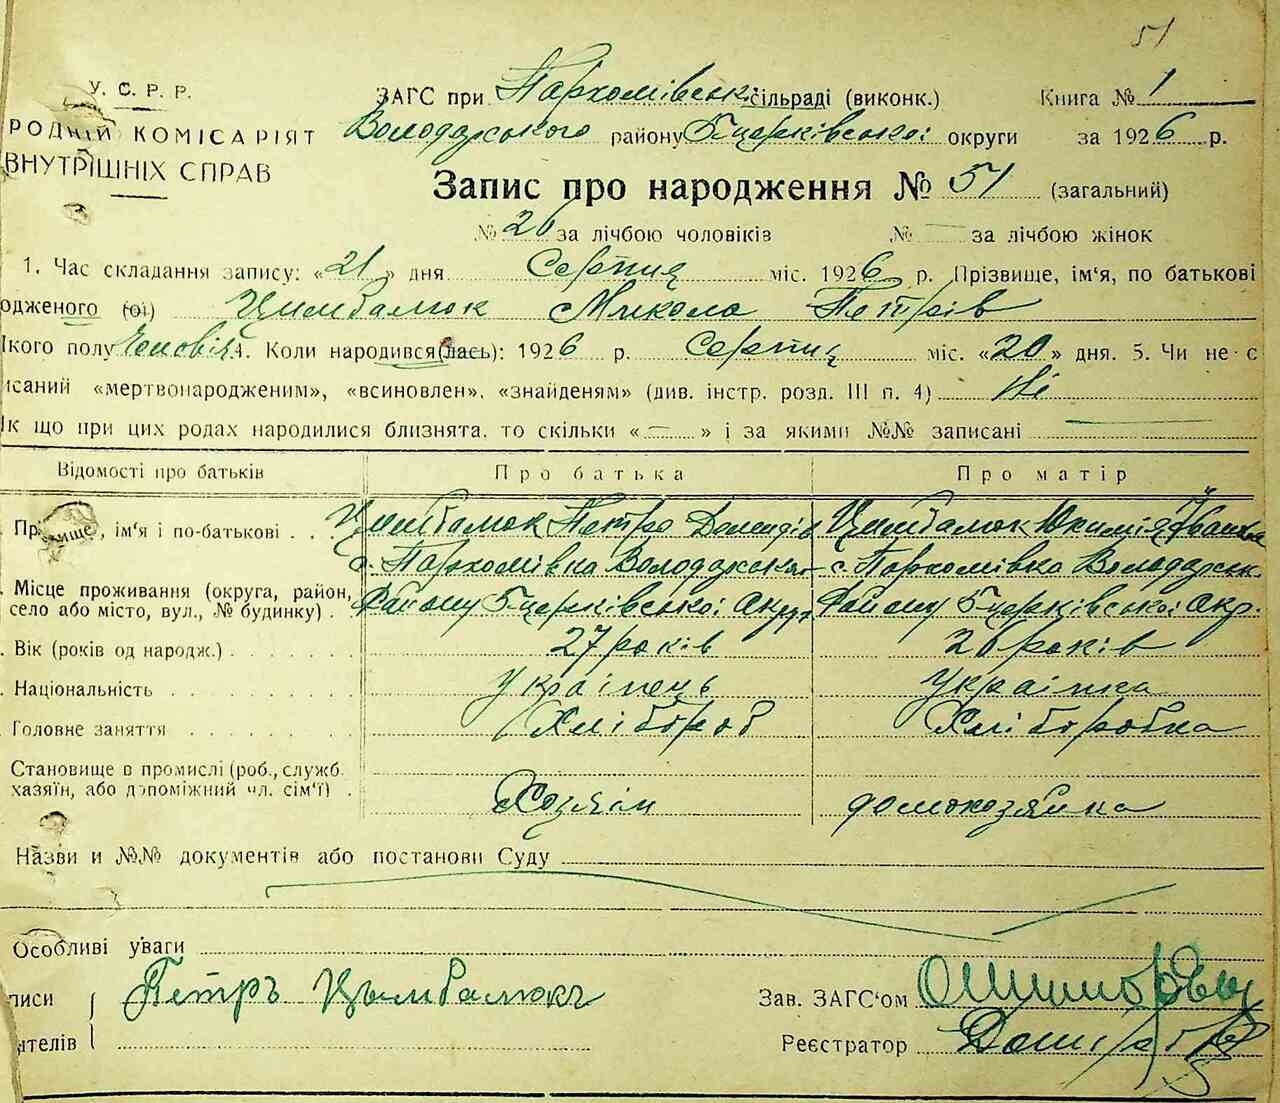 51
У. С. Р. Р.
РОДНІЙ КОМІСАРІЯТ
ВНУТРІШНІХ СПРАВ
ЗАГС при Пархомівськ. сільраді (виконк.) Книга № 1
Володарського району Б-церківської округи за 1926 р.
Запис про народження № 51 (загальний)
№ 26 за лічбою чоловіків № — за лічбою жінок
1. Час складання запису: «21» дня Серпня міс. 1926 р. Прізвище, ім'я, по батькові
одженого (ої) Цимбалюк Микола Петрів
Якого полу Чоловіч. 4. Коли народився(лась): 1926 р. Серпня міс. «20» дня. 5. Чи не є
исаний «мертвонародженим», «всиновлен», «знайденям» (див. інстр. розд. III п. 4) Ні
Як що при цих родах народилися близнята, то скільки «—» і за якими №№ записані
Відомості про батьків Про батька Про матір
Прізвище, ім'я і по-батькові Цимбалюк Петро Цимбалюк
с. Пархомівка Володарськ. с. Пархомівка Володарськ.
Місце проживання (округа, район, село або місто, вул., № будинку) Району Б-церківської Окру Району Б-церківської Окр.
Вік (років од народж.) 27 років 26 років
Національність Українець Українка
Головне заняття Хлібороб Хлібробка
Становище в промислі (роб., служб.
хазяїн, або допоміжний чл. сім'ї) Хозяін домохозяйка
Назви и №№ документів або постанови Суду
Особливі уваги
писи Петръ Цымбалюкъ Зав. ЗАГС'ом
ателів Реєстратор